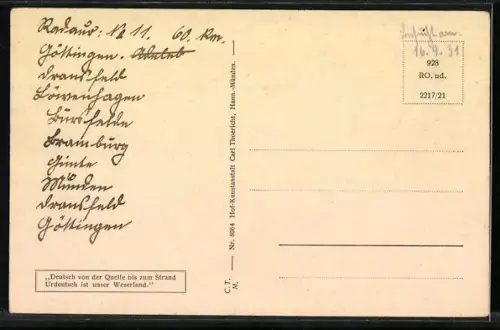 Radtour: No 11. 60 km.
Göttingen. Adeleb
Dransfeld
Löwenhagen
Bursfelde
Bramburg
Gimte
Münden
Dransfeld
Göttingen
„Deutsch von der Quelle bis zum Strand
Urdeutsch ist unser Weserland."
C. T. M. — Nr. 8064 Hof-Kunstanstalt Carl Thoericht, Hann.-Münden.
16.9.31
928
RO, ud.
2217/21